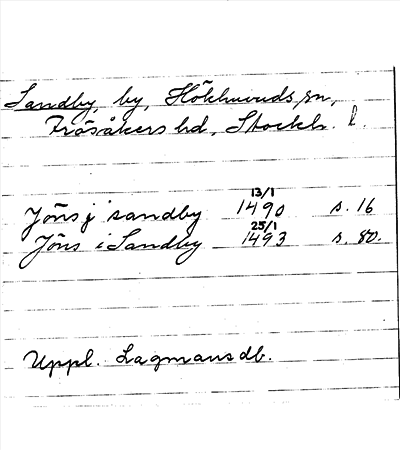 Sandby, by, Hökhuvuds sn,
Frösåkers hd, Stockh. l.
Jöns j sandby 13/1 1490 s. 16
Jöns i Sandby 25/1 1493 s. 80.
Uppl. Lagmansdb.